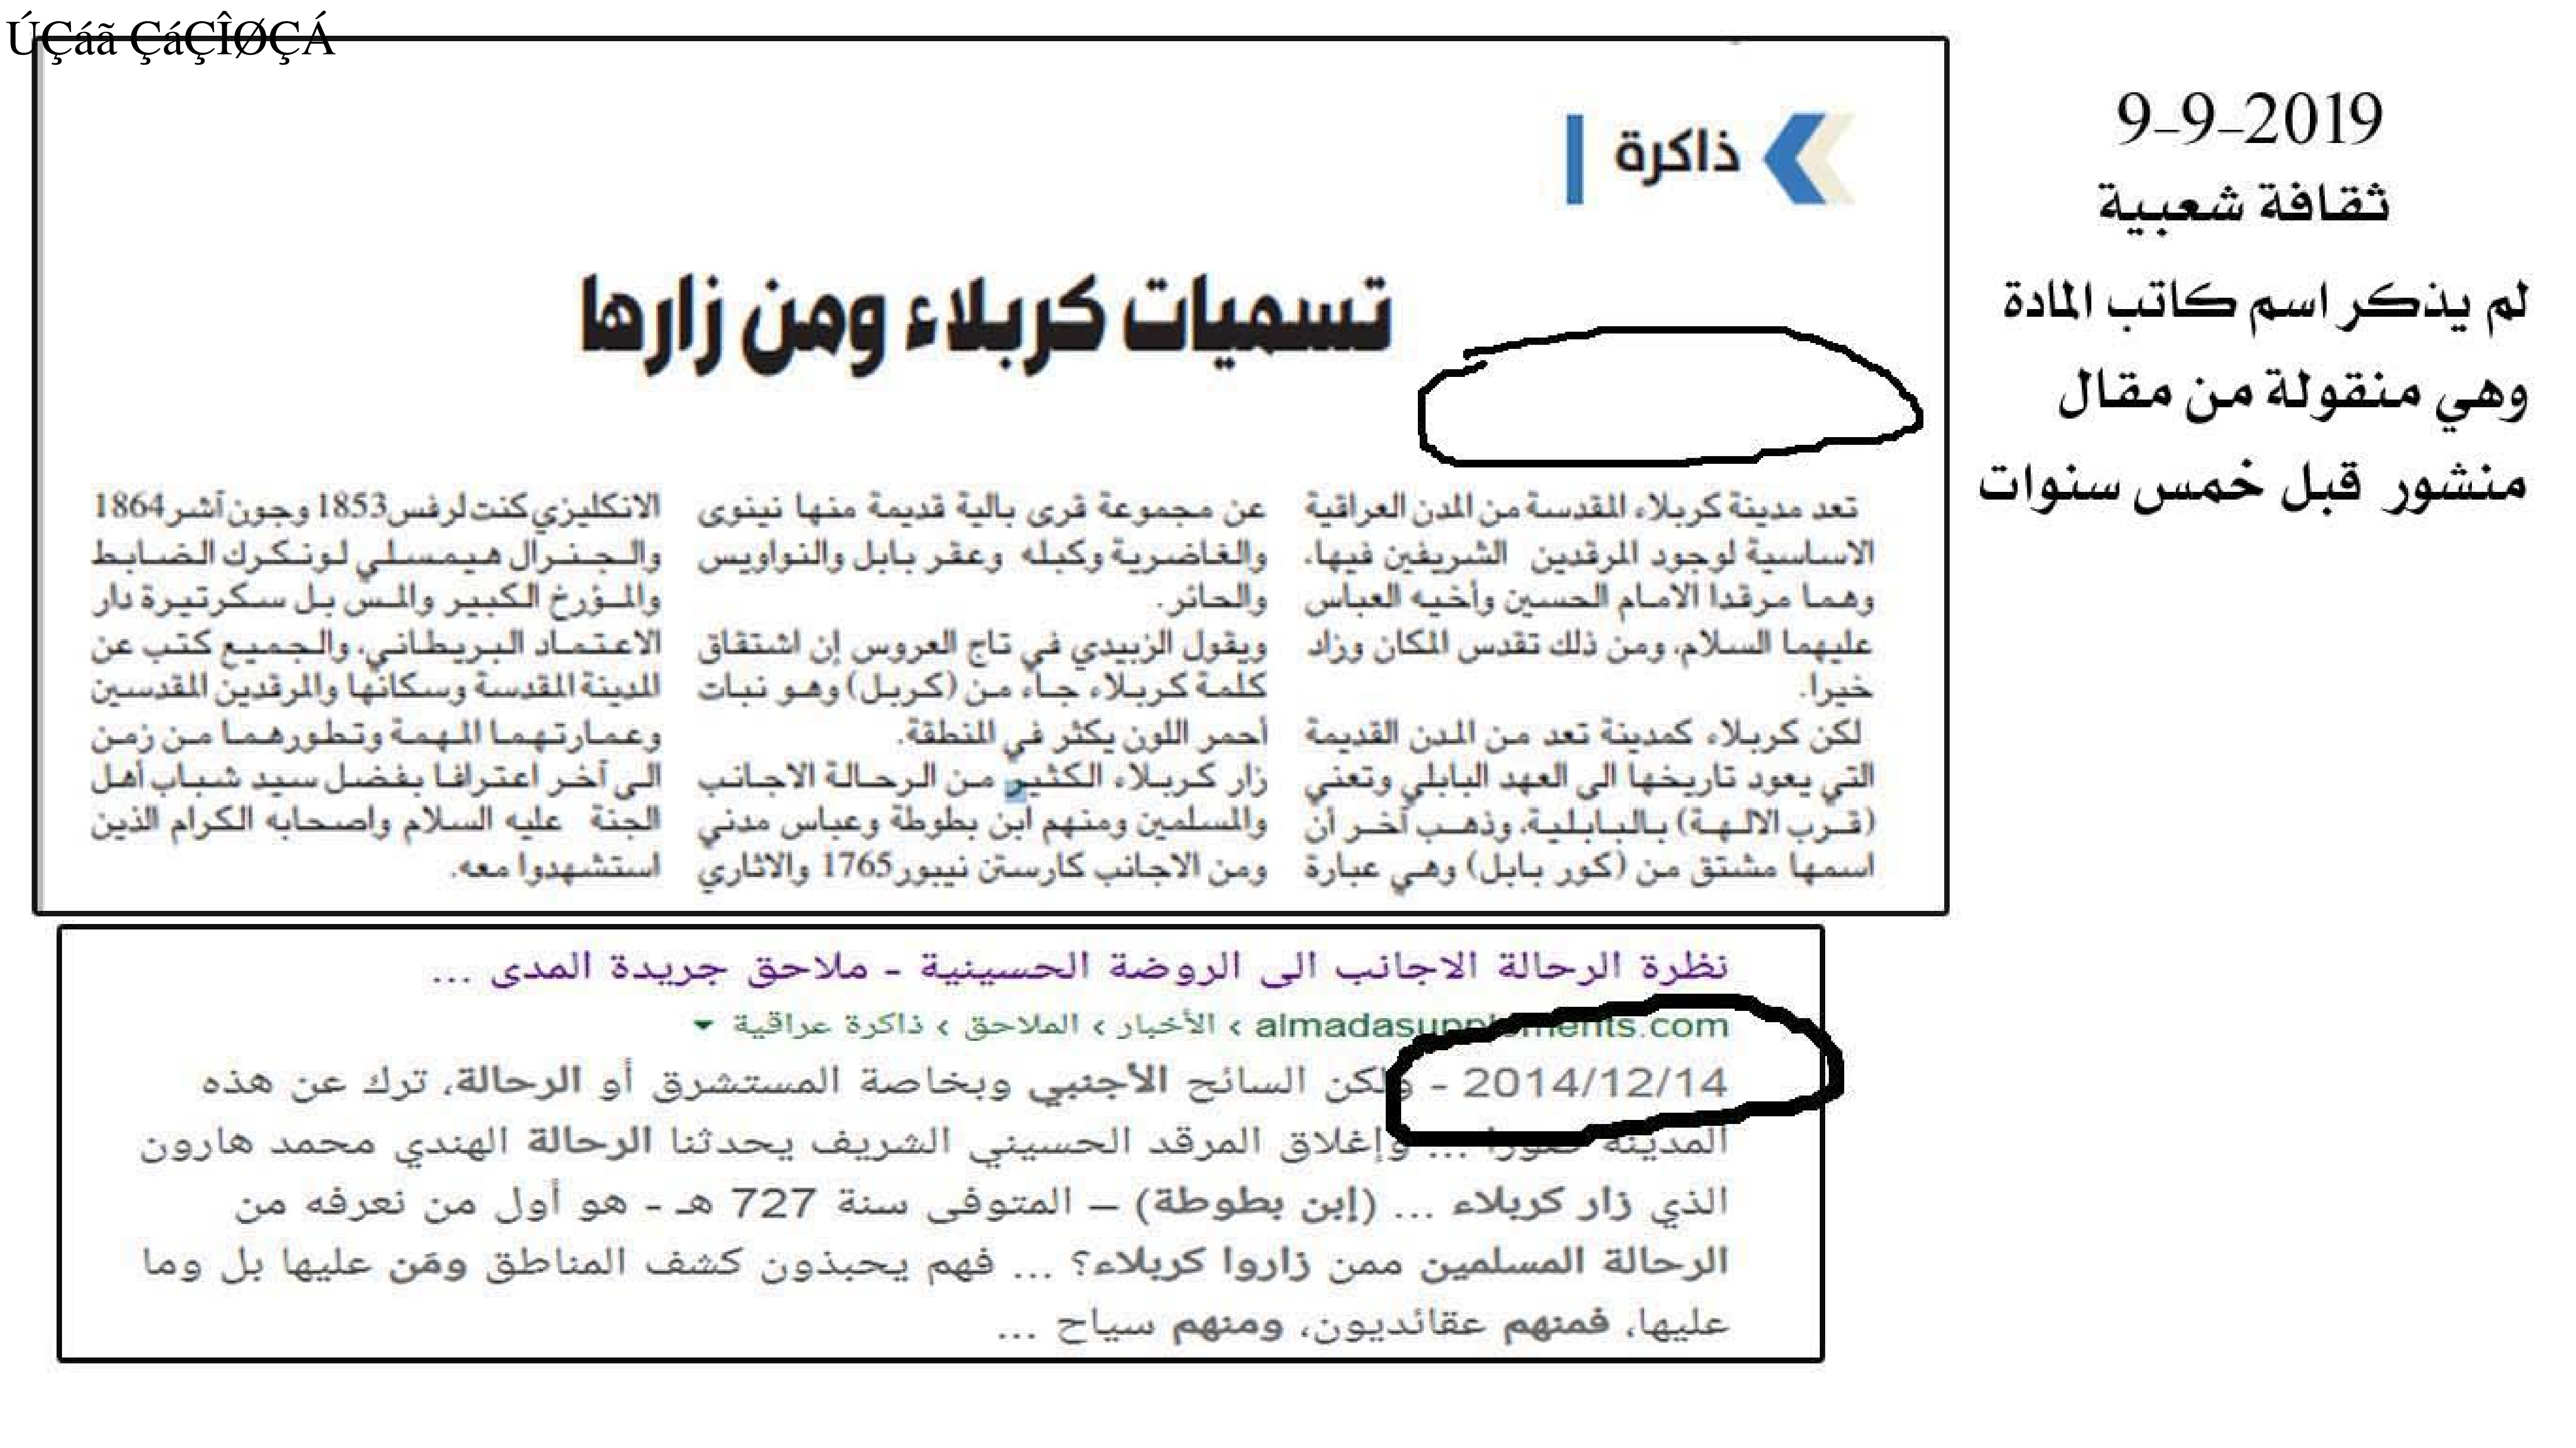 ÚÇáã ÇáÇÎØÇÁ
9-9-2019
ثقافة شعبية
لم يذكر اسم كاتب المادة
وهي منقولة من مقال
منشور قبل خمس سنوات
ذاكرة
تسميات كربلاء ومن زارها
تعد مدينة كربلاء المقدسة من المدن العراقية
الاساسية لوجود المرقدين الشريفين فيها،
وهما مرقدا الامام الحسين وأخيه العباس
عليهما السلام، ومن ذلك تقدس المكان وزاد
خيرا.
لكن كربلاء كمدينة تعد من المدن القديمة
التي يعود تاريخها الى العهد البابلي وتعني
(قرب الالهة) بالبابلية، وذهب آخر أن
اسمها مشتق من (كور بابل) وهي عبارة
عن مجموعة قرى بالية قديمة منها نينوى
والغاضرية وكبله وعقر بابل والنواويس
والحائر.
ويقول الزبيدي في تاج العروس إن اشتقاق
كلمة كربلاء جاء من (كربل) وهو نبات
أحمر اللون يكثر في المنطقة.
زار كربلاء الكثير من الرحالة الاجانب
والمسلمين ومنهم ابن بطوطة وعباس مدني
ومن الاجانب كارستن نيبور1765 والاثاري
الانكليزي كنت لرفس1853 وجون آشر1864
والجنرال هيمسلي لونكرك الضابط
والمؤرخ الكبير والمس بل سكرتيرة دار
الاعتماد البريطاني، والجميع كتب عن
المدينة المقدسة وسكانها والمرقدين المقدسين
وعمارتهما المهمة وتطورهما من زمن
الى آخر اعترافا بفضل سيد شباب أهل
الجنة عليه السلام واصحابه الكرام الذين
استشهدوا معه.
نظرة الرحالة الاجانب الى الروضة الحسينية - ملاحق جريدة المدى ...
almadasupplements.com › الأخبار › الملاحق › ذاكرة عراقية
2014/12/14 - ولكن السائح الأجنبي وبخاصة المستشرق أو الرحالة، ترك عن هذه
المدينة صورا ... وإغلاق المرقد الحسيني الشريف يحدثنا الرحالة الهندي محمد هارون
الذي زار كربلاء ... (إبن بطوطة) – المتوفى سنة 727 هـ - هو أول من نعرفه من
الرحالة المسلمين ممن زاروا كربلاء؟ ... فهم يحبذون كشف المناطق ومَن عليها بل وما
عليها، فمنهم عقائديون، ومنهم سياح ...